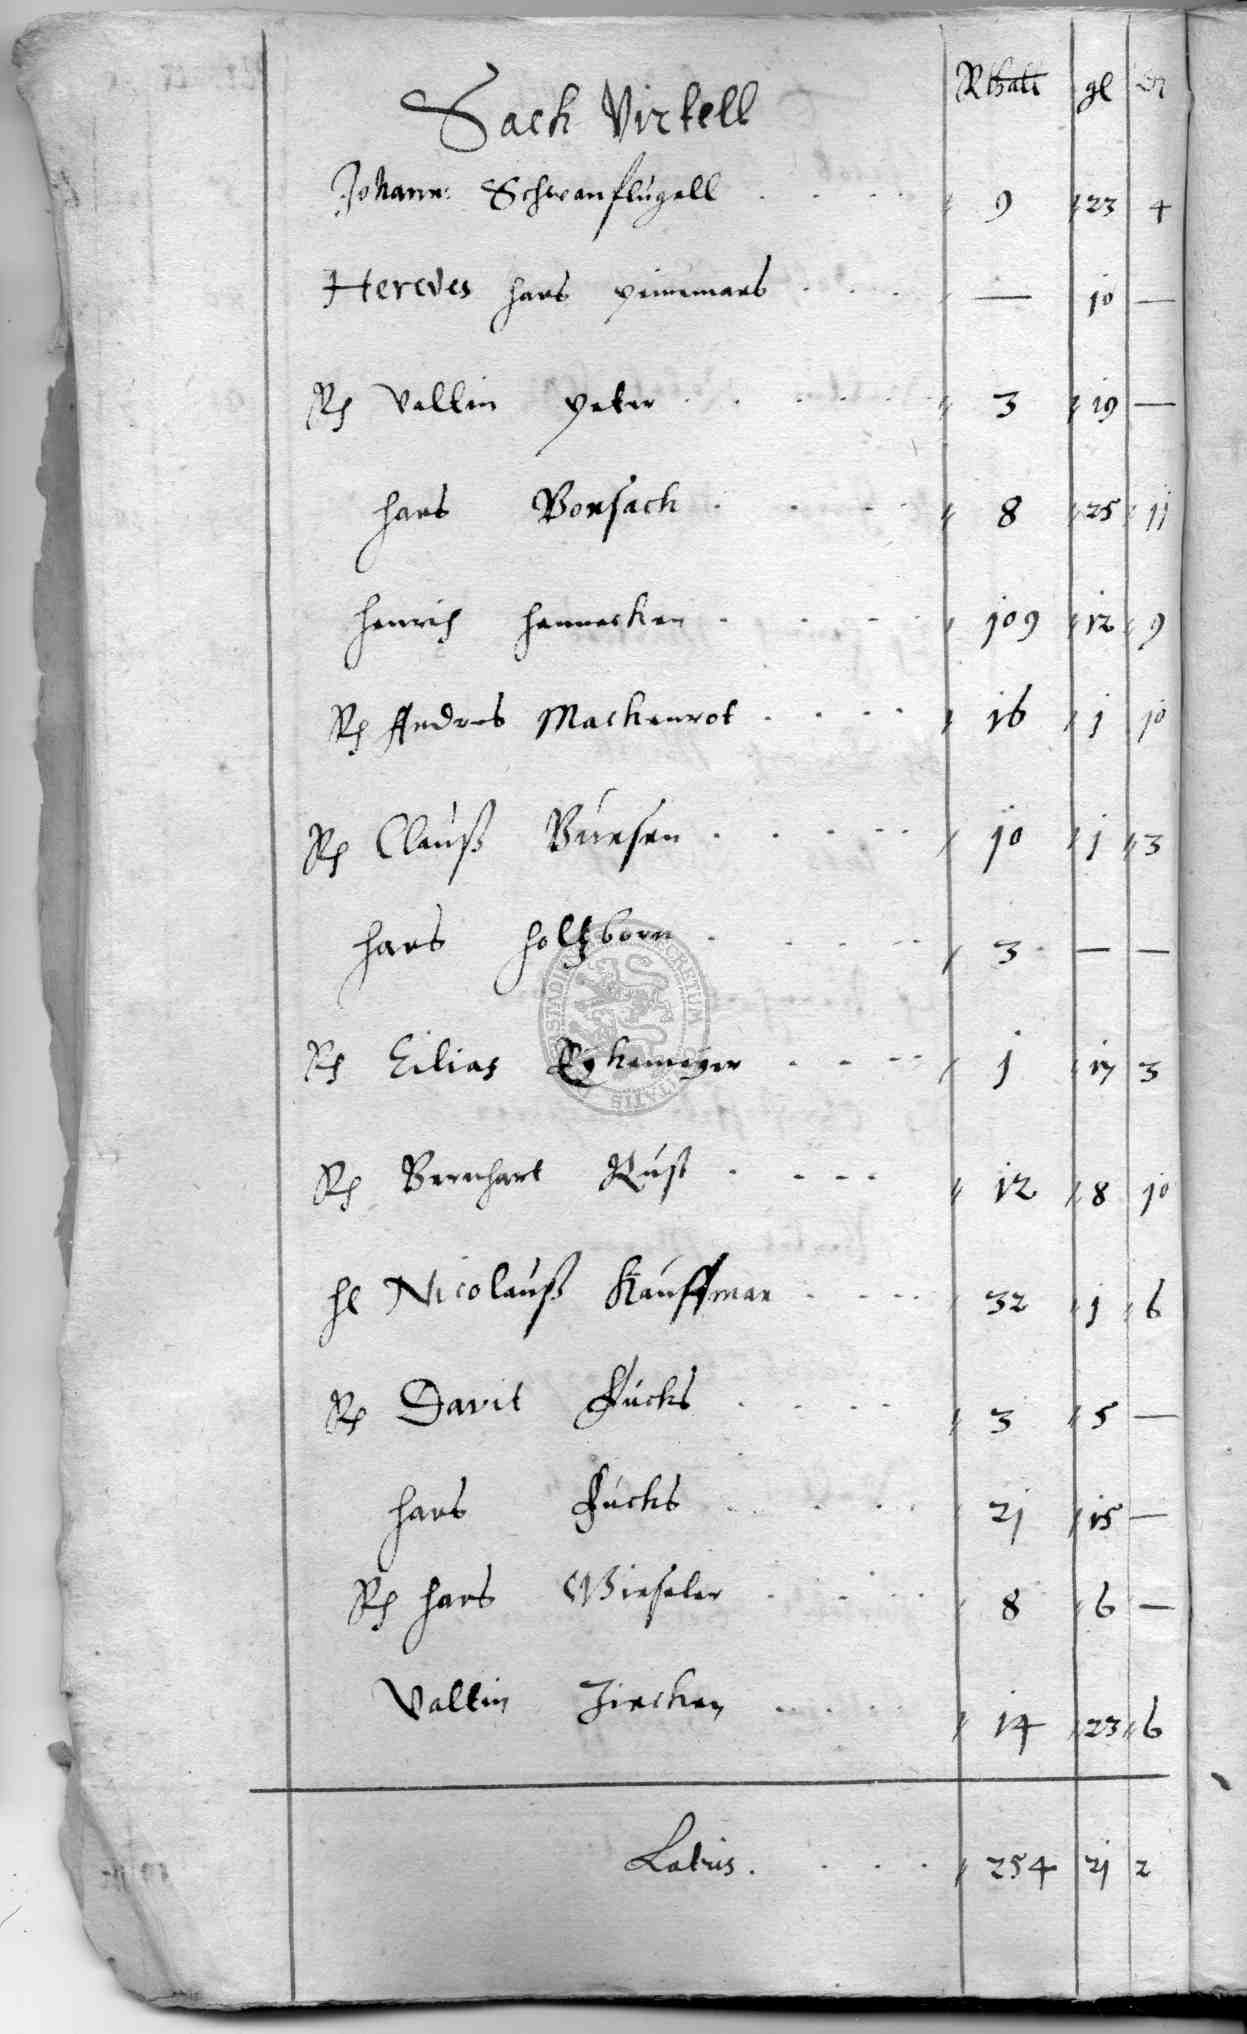 Sack Virtell Rthall gl
Johann: Schwanflügell . . . . 9 23 4
Hans . . . . — 10 —
Rh Valtin Peter . . . . . 3 19 —
Hans Borsach . . . . 8 25 11
Henrich Hennecken . . . . 109 12 9
Rh Andres Mackenrot . . . . 16 1 10
Rh Clauß Bursen . . . . . 10 1 3
Hans Holtzborn . . . . . 3 — —
Rh Eilias Eykemeyer . . . . 1 17 3
Rh Bernhart Rust . . . . 12 8 10
Nicolauß Kauffman . . . . 32 1 6
Rh Davit Fucks . . . . 3 5 —
Hans Fucks . . . . 21 15 —
Rh Hans Wieseler . . . . 8 6 —
Valtin Jincken . . . . . 14 23 6
Latus . . . . . 254 21 2
SECRETUM